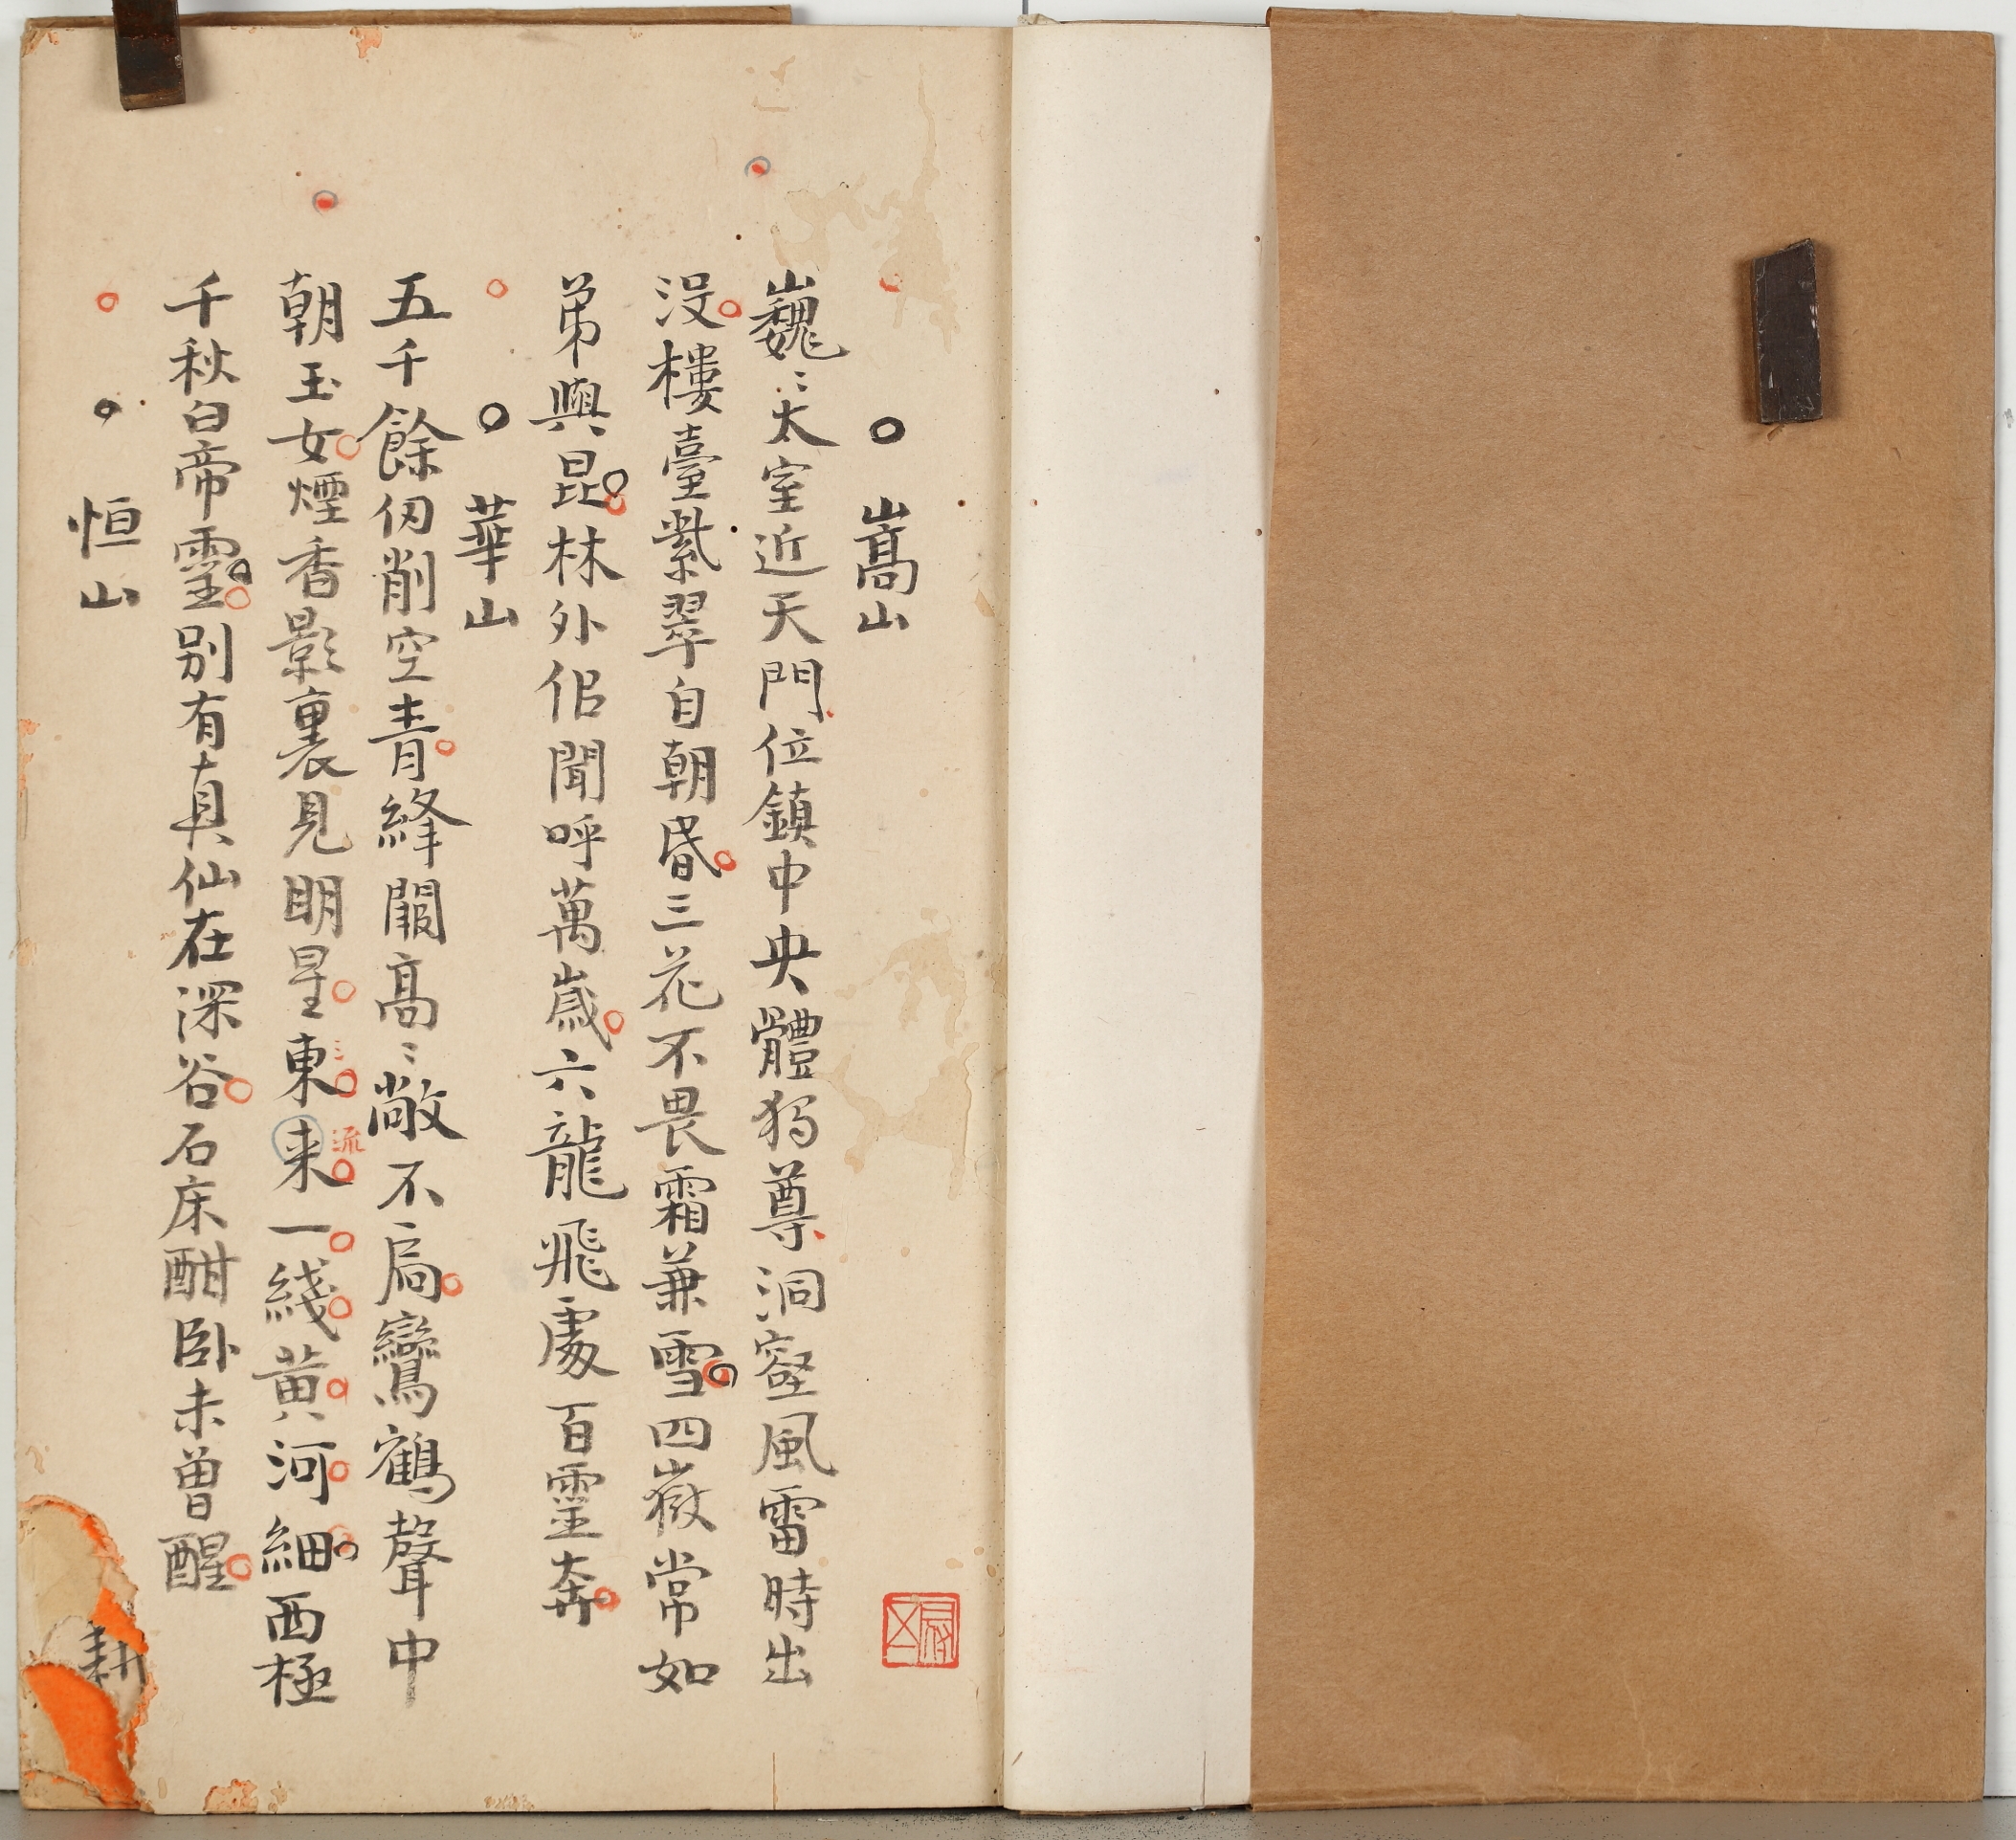 嵩山
巍〻太室近天門位鎮中央體獨尊洞壑風雷時出
没樓臺紫翠自朝昏三花不畏霜兼雪四嶽常如
弟與昆林外佀聞呼萬歲六龍飛處百靈奔
華山
五千餘仞削空青絳闕高〻敞不扃鸞鶴聲中
朝玉女煙香影裏見明星東来一綫黄河細西極
流
千秋白帝靈别有真仙在深谷石床酣卧未曾醒
恒山
耕